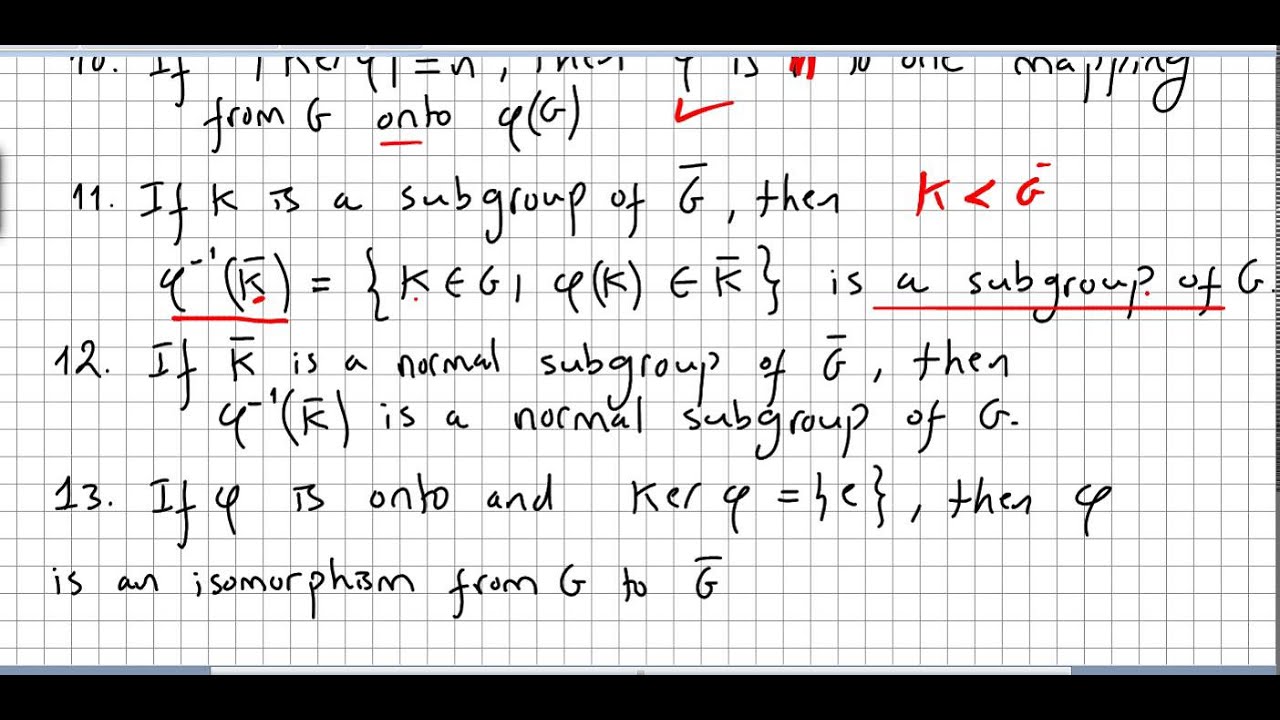 10. If |Ker φ| = n, then φ is n to one mapping
from G onto φ(G) ✓
11. If K is a subgroup of G̅, then K < G̅
φ⁻¹(K̅) = {K ∈ G | φ(K) ∈ K̅} is a subgroup of G.
12. If K̅ is a normal subgroup of G̅, then
φ⁻¹(K̅) is a normal subgroup of G.
13. If φ is onto and Ker φ = {e}, then φ
is an isomorphism from G to G̅